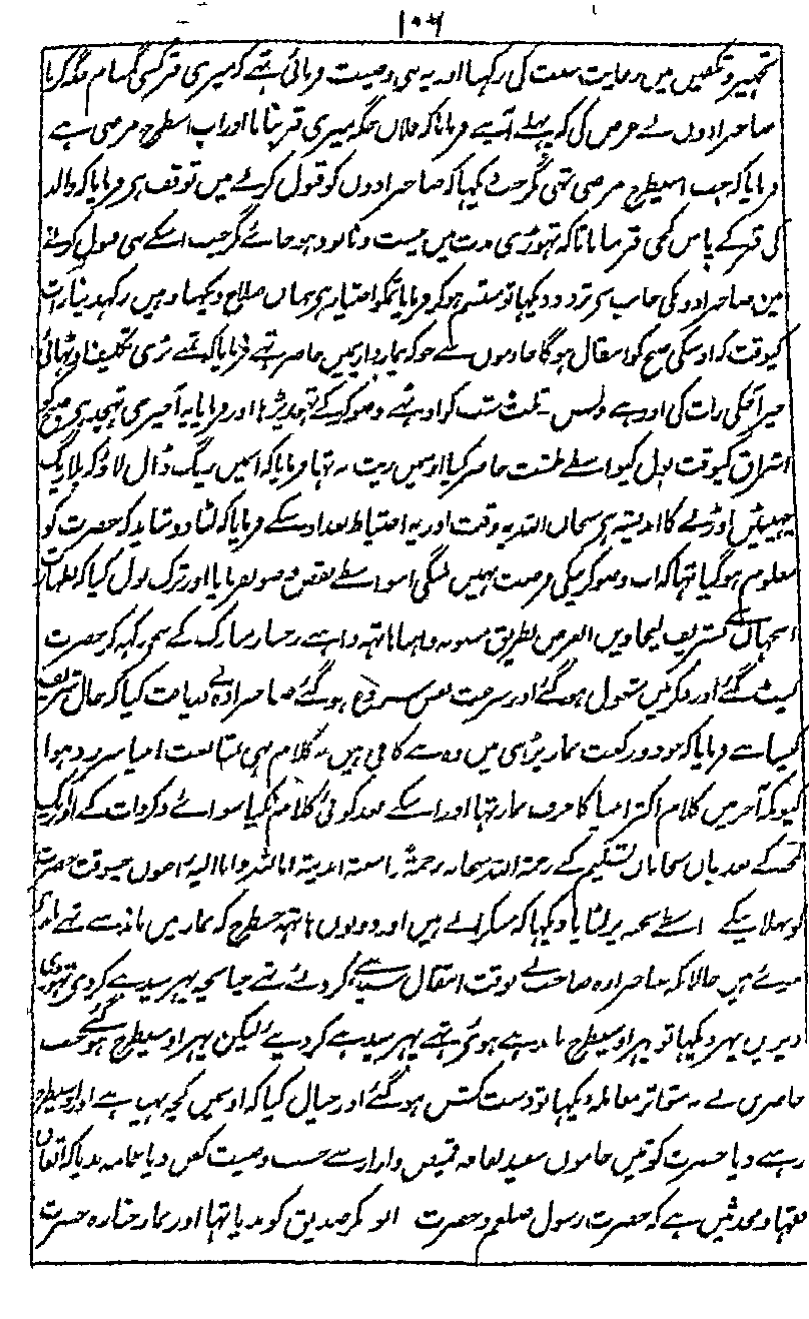 ۱۰۶
تجہیز وتکفین میں رعایت سنت کی رکہنا اور یہ بہی وصیت فرمائی تہے کہ میری قبر کسی گمنام جگہ کرنا
صاحبزادوں نے عرض کی کہ پہلے آپسے فرمایا کہ فلاں جگہ میری قبر بنانا اور اب اسطرح مرضی ہے
فرمایا کہ جب اسیطرح مرضی تہی مگر جب دیکہا کہ صاحبزادوں کو قبول کرنے میں توقف ہے فرمایا کہ والد
کی قبر کے پاس کچی قبر بنانا تاکہ تہوڑی مدت میں نیست ونابود ہو جائے مگر جب اسکے بہی قبول کرنے
میں صاحبزادونکی جانب سے تردد دیکہا تو متبسم ہو کر فرمایا تمکو اختیار ہے جہاں صلاح دیکہنا وہیں رکہدینا رات
کیوقت کہ اوسکی صبح کو انتقال ہوگا خادموں سے جو کہ بیمارداری میں حاضر تہے فرمایا کہ تمنے بڑی تکلیف اوٹہائی
خیر آجکی رات کی اور ہے وبس ثلث شب کو اوٹہے وضو کرکے تہجد پڑہا اور فرمایا یہ آخیری تہجد ہے صبح کو
اشراق کیوقت بول کیواسطے طشت حاضر کیا اوسمیں ریت نہ تہا فرمایا کہ اسمیں ریگ ڈال لاؤ کہ بلا ریگ
چہینٹیں اوڑنے کا اندیشہ ہے سبحان اللہ یہ وقت اور یہ احتیاط بعد اوسکے فرمایا کہ لٹا دو شاید کہ حضرت کو
معلوم ہو گیا تہا کہ اب وضو کرنیکی فرصت نہیں ملیگی اسواسطے نقض وضو نفرمایا اور ترک بول کیا کہ بطہارت
اسجہاں سے تشریف لیجاویں الغرض بطریق مسنونہ داہنا ہاتہہ داہنے رخسار مبارک کے نیچے رکہہ کر حضرت
لیٹ گئے اور ذکر میں مشغول ہوگئے اور سرعت نفس شروع ہو گئے صاحبزادہ نے دریافت کیا کہ حال شریف
کیسا ہے فرمایا کہ جو دو رکعت نماز پڑہی میں وہ ہے کافی ہیں یہ کلام بہی بمتابعت انبیا سرزد ہوا
کیونکہ آخر میں کلام اکثر انبیا کا حرف نماز تہا اور اسکے بعد کوئی کلام نکیا سوائے ذکر ذات کے اور ایک
لمحہ کے بعد جاں بجاناں تسلیم کے رحمۃ اللہ سبحانہ رحمۃً واسعۃ انا للہ وانا الیہ راجعون جسوقت حضرت
کو نہلانیکے واسطے تختہ پر لٹایا دیکہا کہ مسکراتے ہیں اور دونوں ہاتہہ جسطرح کہ نماز میں باندہتے تہے
ہوئے ہیں حالانکہ صاحبزادہ صاحب نے بوقت انتقال سیدہے کر دئے تہے چنانچہ پہر سیدہے کر دی تہوڑی
دیر میں پہر دیکہا تو پہر اوسیطرح باندہے ہوئے تہے پہر سیدہے کر دیے لیکن پہر اوسیطرح ہو گئے جب
حاضرین نے یہ متواتر معاملہ دیکہا تو دست کش ہو گئے اور خیال کیا کہ اسمیں کچہہ بہید ہے اور اوسیطرح
رہنے دیا حضرت کو تین جاموں سفید لفافہ قمیص وازار سے حسب وصیت کفن دیا عمامہ ندیا کہ اتفاق
فقہا ومحدثین ہے کہ حضرت رسول صلعم وحضرت ابو بکر صدیق کو ندیا تہا اور نماز جنازہ حضرت